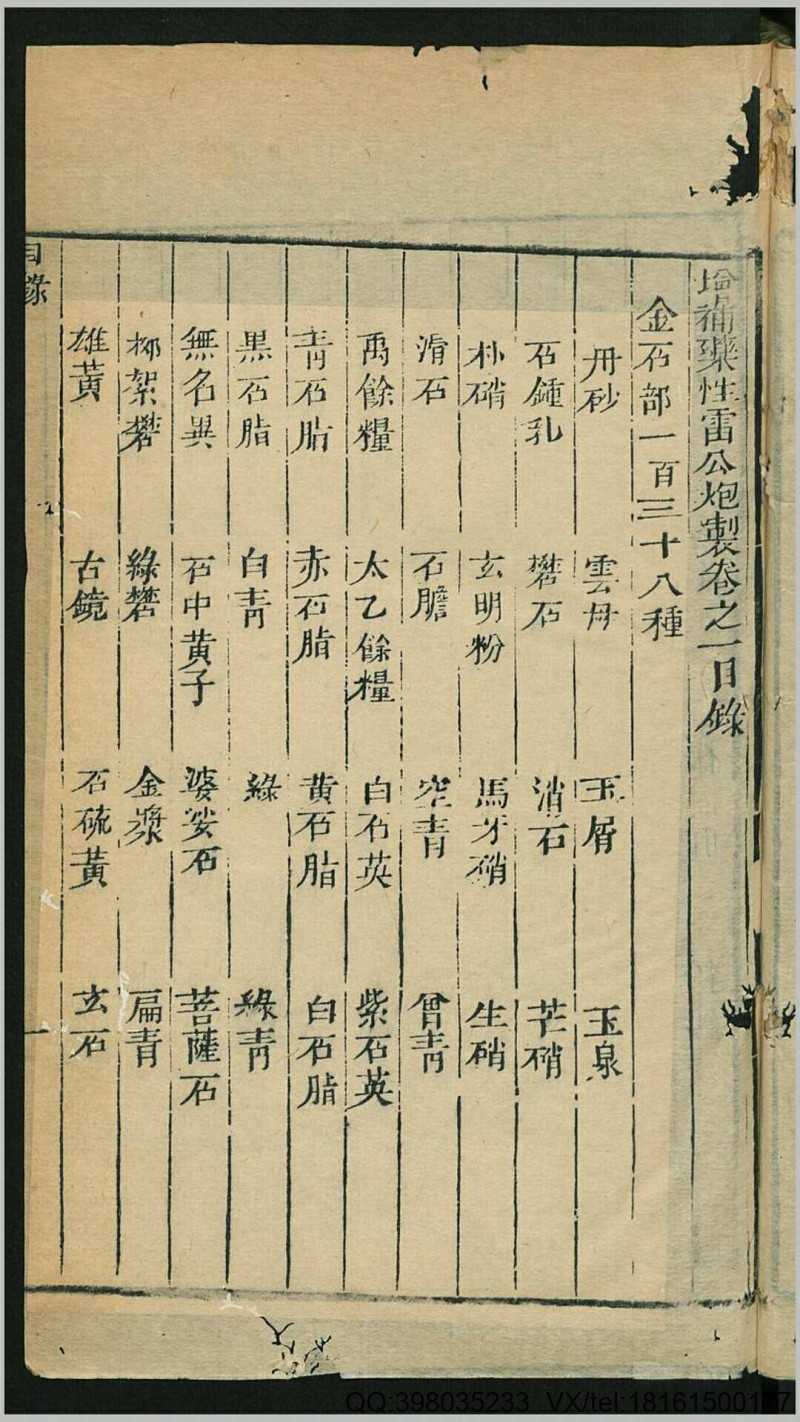 增補藥性雷公炮製卷之一目錄
金石部一百三十八種
丹砂 雲母 玉屑 玉泉
石鍾乳 礬石 消石 芒硝
朴硝 玄明粉 馬牙硝 生硝
滑石 石膽 空青 曾青
禹餘糧 太乙餘糧 白石英 紫石英
青石脂 赤石脂 黄石脂 白石脂
黒石脂 白青 綠 綠青
無名異 石中黄子 婆娑石 菩薩石
柳絮礬 綠礬 金漿 扁青
雄黃 古鏡 石硫黃 玄石
目錄 一
QQ:398035233 VX/tel:181615001